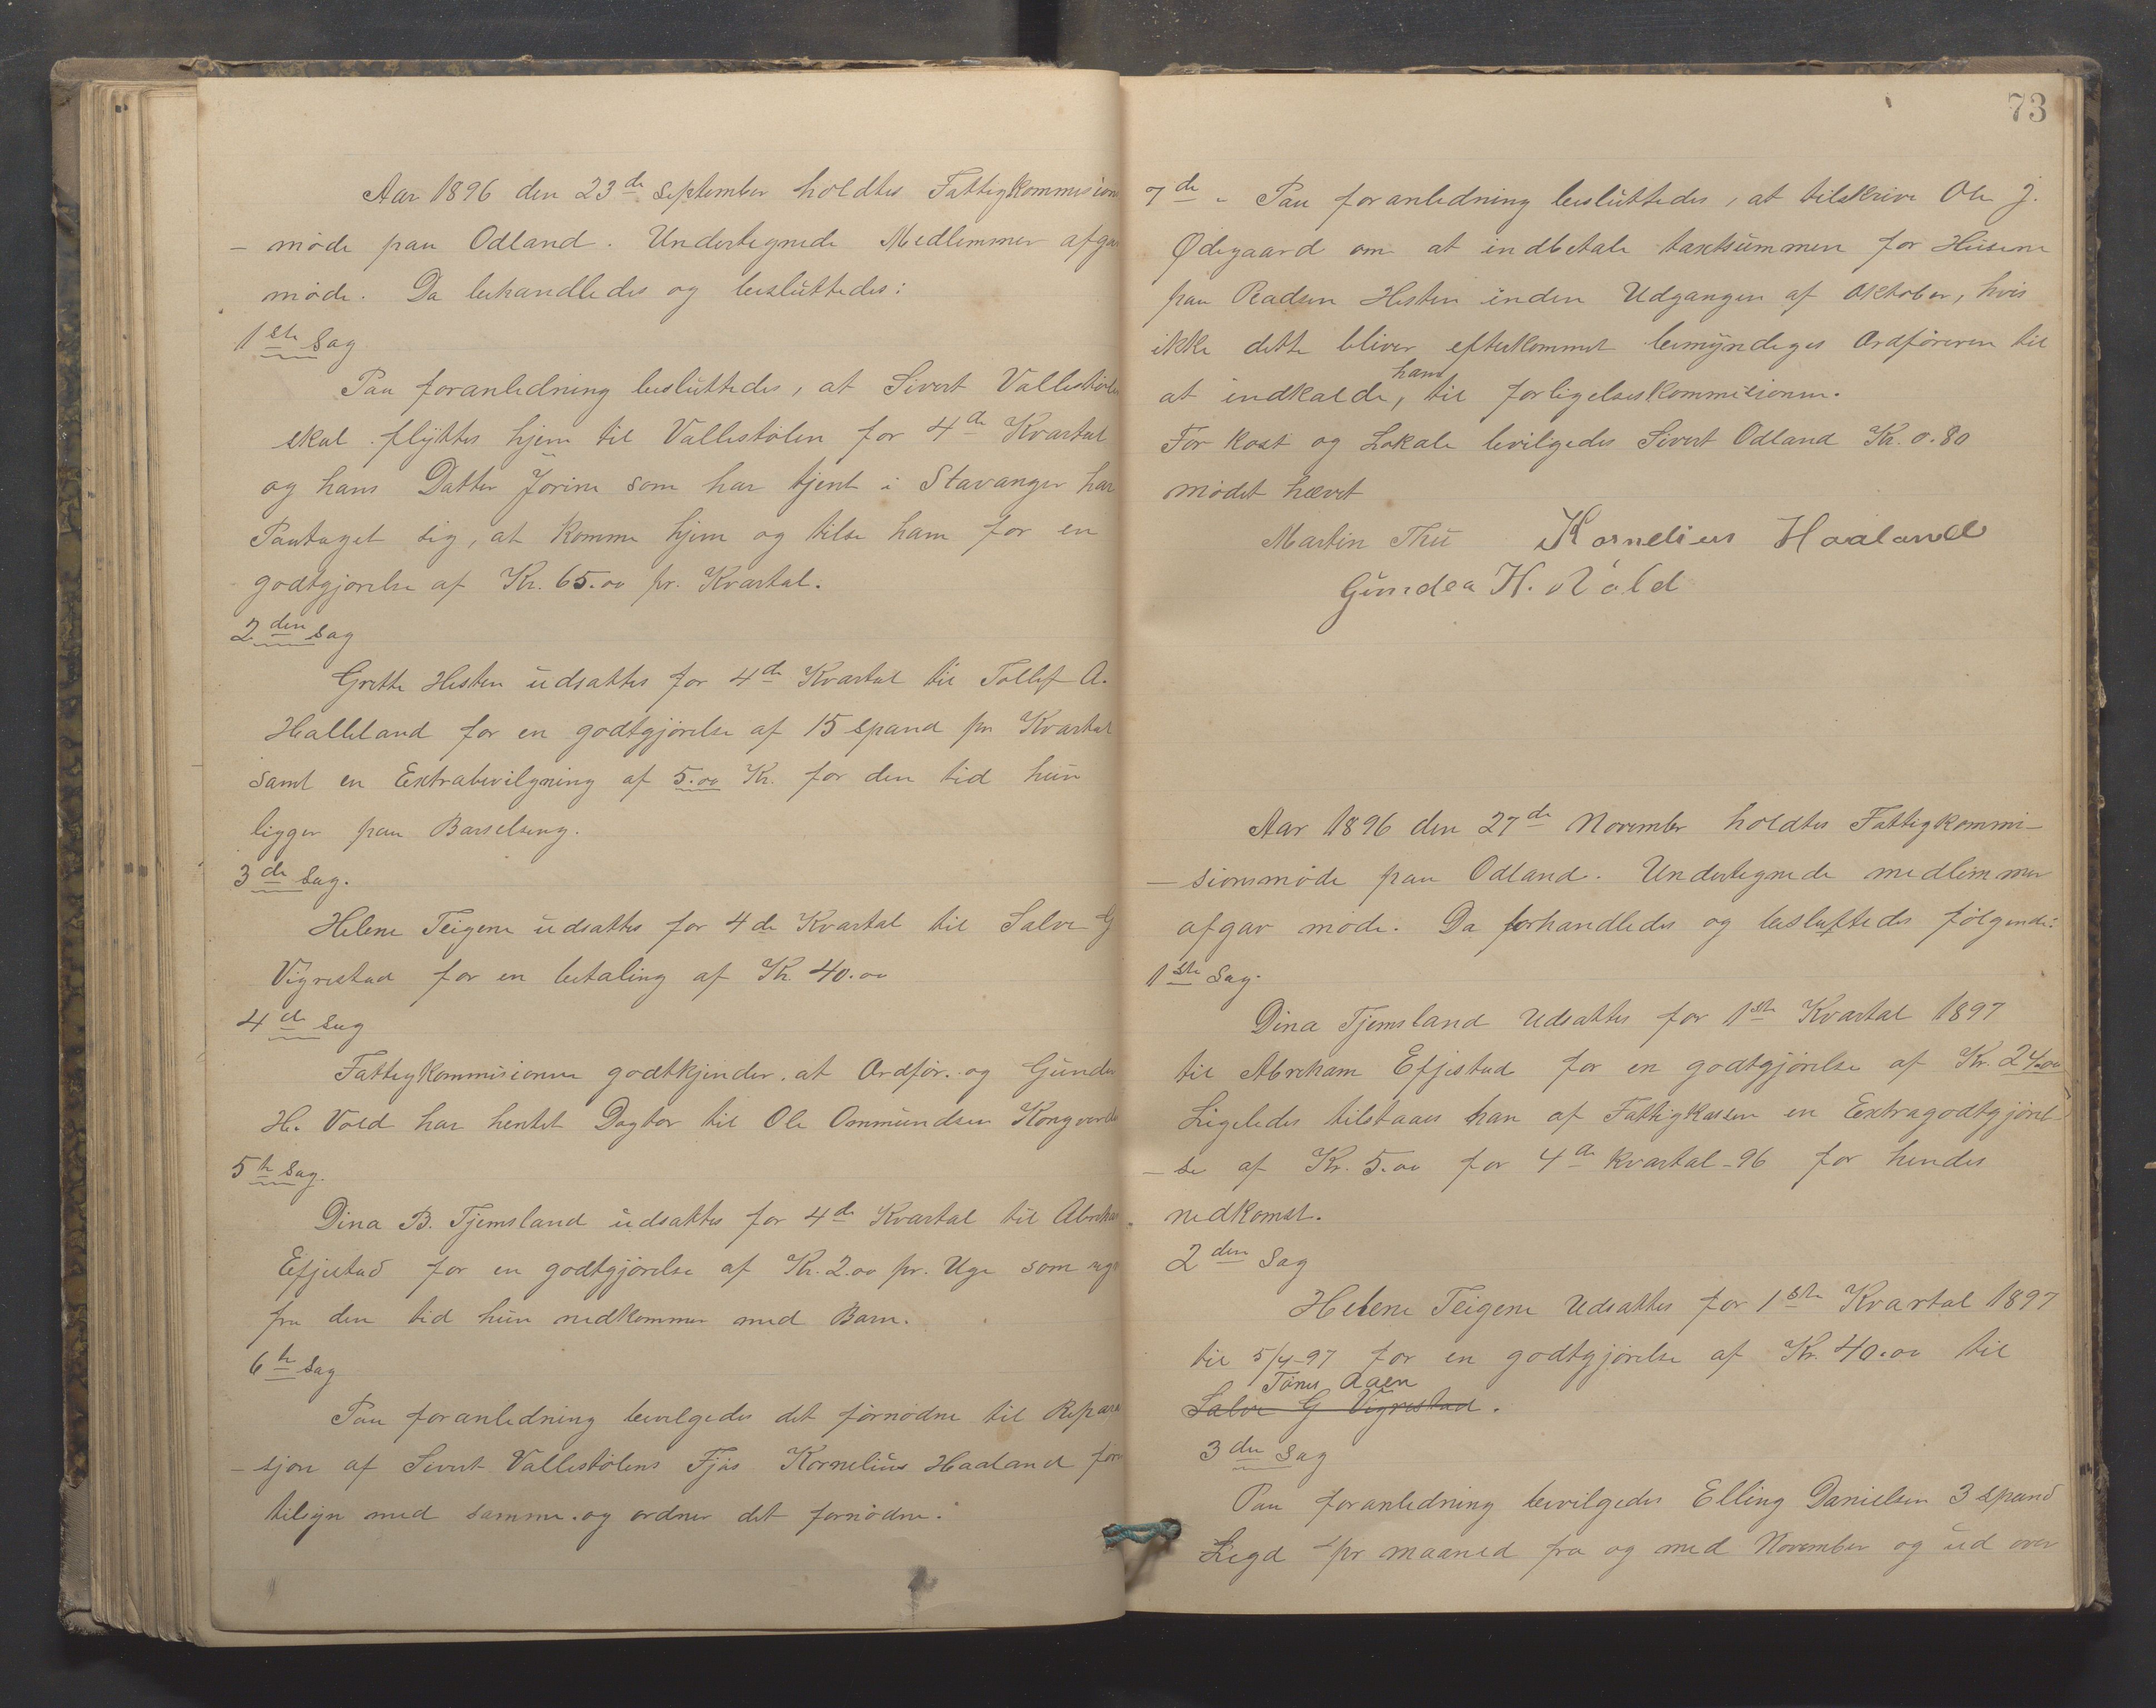 Aar 1896 den 23de September holdtes Fattigkommision
- møde paa Odland. Undertegnede Medlemmer afgav
møde. Da behandledes og besluttedes:
1ste Sag
Paa foranledning besluttedes, at Sivert Vallestølen
skal flyttes hjem til Vallestølen for 4de Kvartal
og hans Datter Jorine som har tjent i Stavanger har
Paataget sig, at komme hjem og tilse ham for en
godtgjørelse af Kr. 65.00 pr. Kvartal.
2den Sag
Grette Hesten udsattes for 4de Kvartal til Tollef A.
Halleland for en godtgjørelse af 15 spand pr Kvartal
samt en Extrabevilgning af 5.00 Kr. for den tid hun
ligger paa Barselseng.
3de Sag.
Helene Teigene udsattes for 4de Kvartal til Salve G
Vigrestad for en betaling af Kr. 40.00
4de Sag
Fattigkommisionen godtkjender, at Ordfør. og Gunder
H. Vold har hentet Dogtor til Ole Ommundsen
5te Sag.
Dina B. Tjemsland udsattes for 4de Kvartal til Abreham
Eefjestad for en godtgjørelse af Kr. 2.00 pr. Uge som
fra den tid hun nedkommer med Barn.
6te Sag
Paa foranledning bevilgedes det førnødne til Repara
- sjon af Sivert Vallestølens Fjøs Kornelius Haaland
tilsyn med samme og ordner det fornødne.
73
7de - Paa foranledning besluttedes, at tilskrive Ole J.
Ødegaard om at indbetale taxtsummen for Husene
paa Hesten inden Udgangen af Oktober, hvis
ikke dette bliver efterkommet bemyndiges Ordføreren til
ham
at indkalde, til forligelseskommisionen.
For kost og Lokale bevilgedes Sivert Odland Kr. 0.80
Mødet hævet
Martin Thu Kornelius Haaland
Gunder H. Vold
Aar 1896 den 27de November holdtes Fattigkommi-
- sionsmøde paa Odland. Undertegnede medlemmer
afgav møde. Da forhandledes og besluttedes følgende:
1ste Sag.
Dina Tjemsland Udsattes for 1ste Kvartal 1897
til Abreham Eefjestad for en godtgjørelse af Kr. 24.00
Ligeledes tilstaaes han af Fattigkassen en Extragodtgjørel-
- se af Kr. 5.00 for 4de kvartal -96 for hendes
nedkomst.
2den Sag
Helene Teigene Udsattes for 1ste Kvartal 1897
til 5/4-97 for en godtgjørelse af Kr. 40.00 til
Tønes Aaen
Salve G Vigrestad.
3die Sag
Paa foranledning bevilgedes Elling Danielsen 3 spand
Legd pr maaned fra og med November og ud over